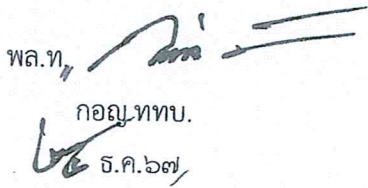 พล.ท.
กอญ.ททบ.
ธ.ค.๖๗